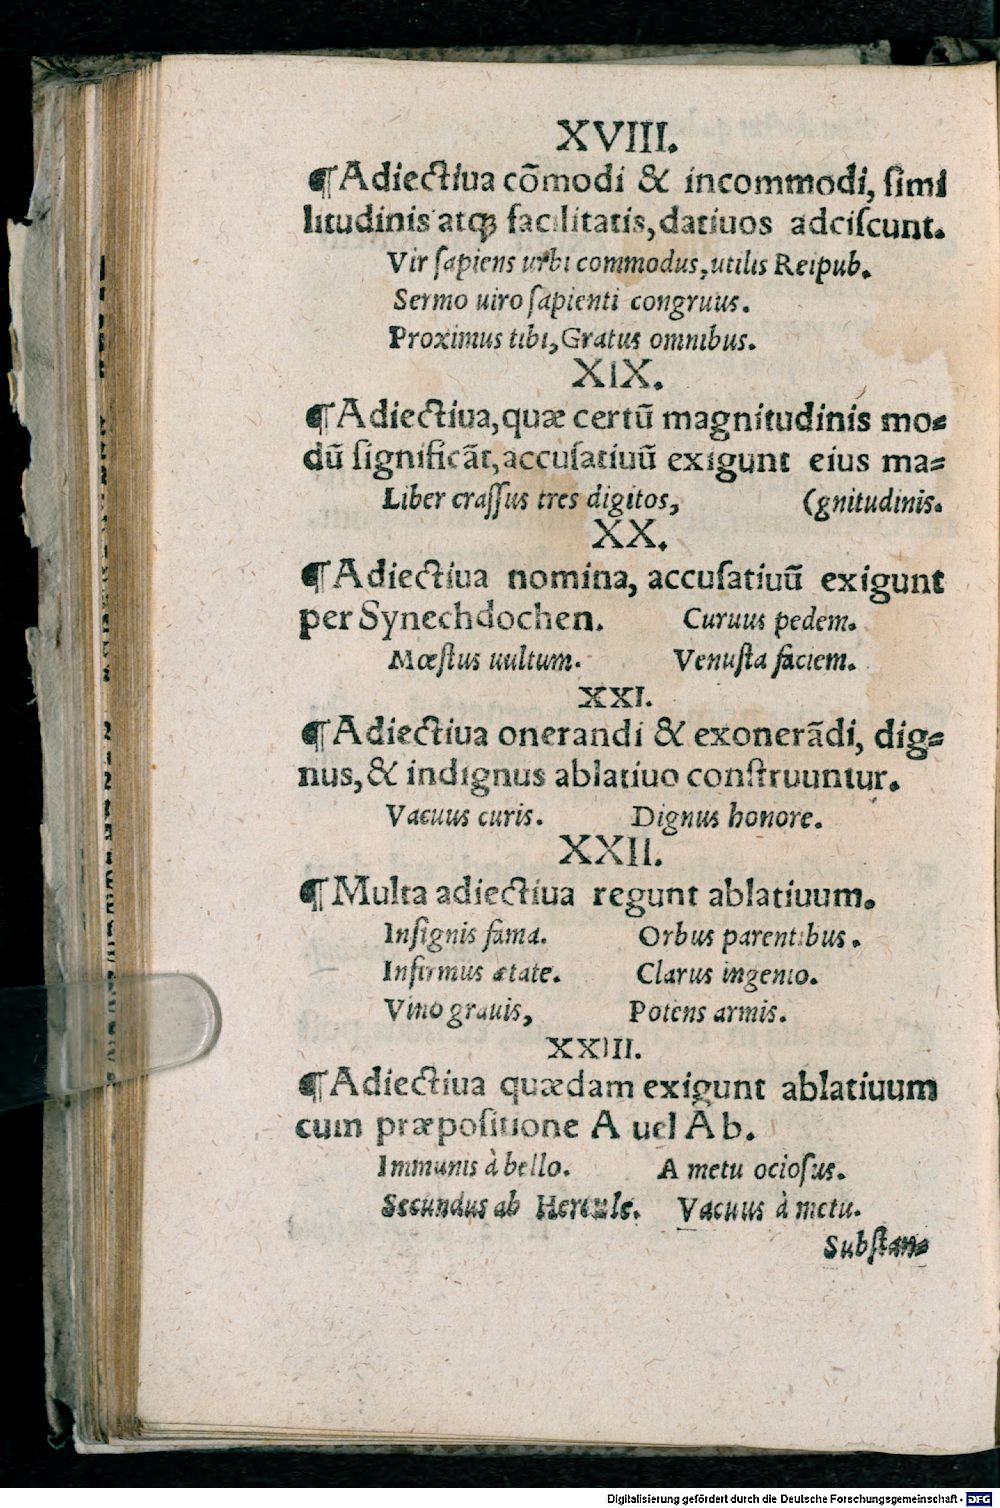 XVIII.
¶Adiectiua cõmodi & incommodi, simi
litudinis atq; facilitatis, datiuos adciscunt.
Vir sapiens urbi commodus, utilis Reipub.
Sermo uiro sapienti congruus.
Proximus tibi, Gratus omnibus.
XIX.
¶Adiectiua, quæ certũ magnitudinis mo=
dũ significãt, accusatiuũ exigunt eius ma=
Liber crassus tres digitos, (gnitudinis.
XX.
¶Adiectiua nomina, accusatiuũ exigunt
per Synechdochen. Curuus pedem.
Mœstus uultum. Venusta faciem.
XXI.
¶Adiectiua onerandi & exonerãdi, dig=
nus, & indignus ablatiuo construuntur.
Vacuus curis. Dignus honore.
XXII.
¶Multa adiectiua regunt ablatiuum.
Insignis fama. Orbus parentibus.
Infirmus ætate. Clarus ingenio.
Vino grauis, Potens armis.
XXIII.
¶Adiectiua quædam exigunt ablatiuum
cum præpositione A uel Ab.
Immunis à bello. A metu ociosus.
Secundus ab Hercule. Vacuus à metu.
Substan=
Digitalisierung gefördert durch die Deutsche Forschungsgemeinschaft - DFG